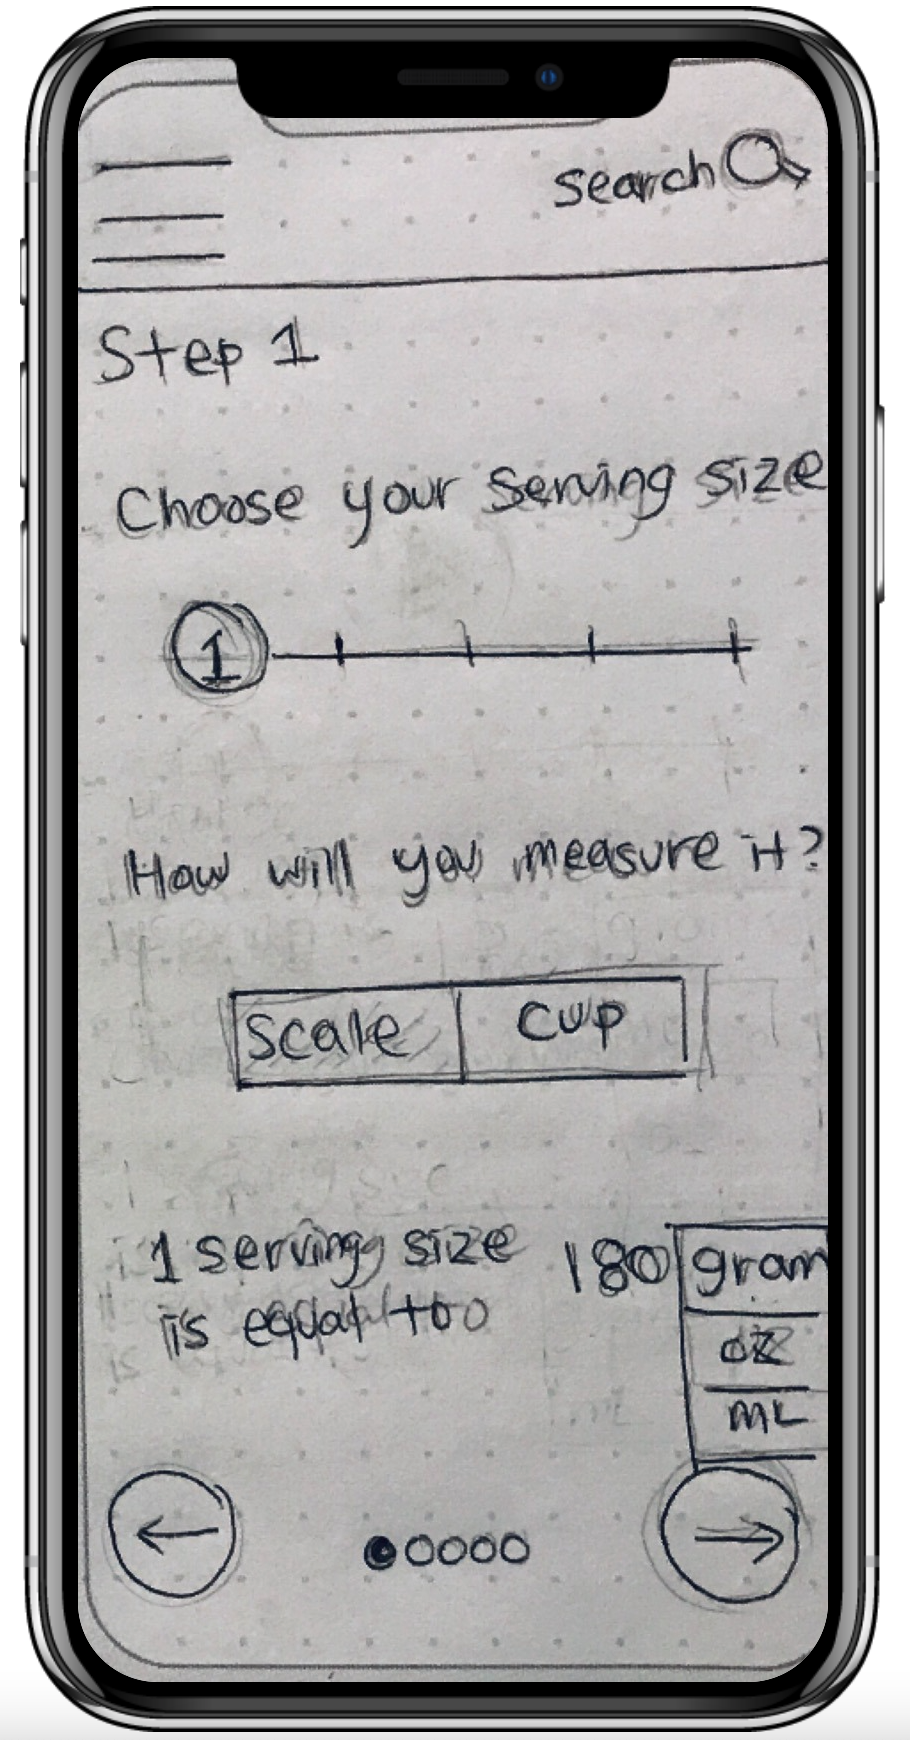 search
Step 1
Choose your serving size
1
How will you measure it?
Scale
cup
1 serving size
is equal to
180
gram
oz
mL